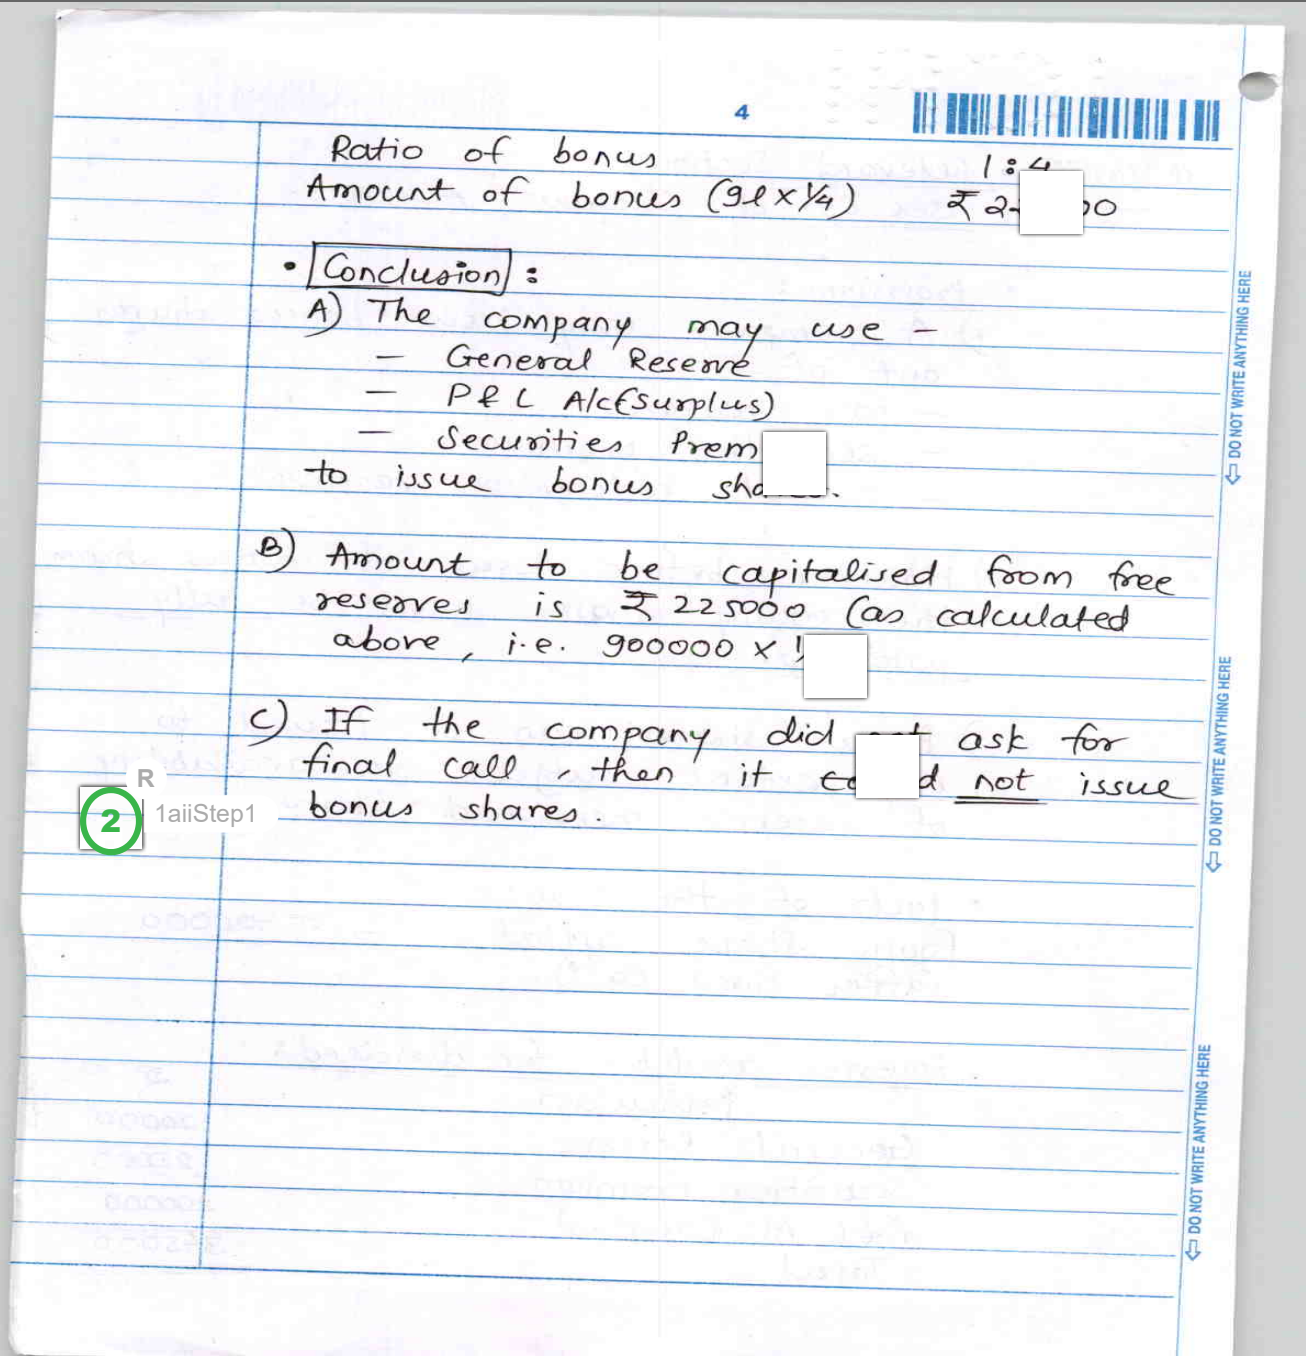 4
Ratio of bonus 1:4
Amount of bonus (9l x 1/4) ₹
• Conclusion :
A) The company may use -
- General Reserve
- P & L A/c (surplus)
- Securities
to issue bonus
B) Amount to be capitalised from free
reserves is ₹ 225000 (as calculated
above, i.e. 900000 x
C) If the company did ask for
final call, then it not issue
bonus shares.
R
2 1aiiStep1
DO NOT WRITE ANYTHING HERE
DO NOT WRITE ANYTHING HERE
DO NOT WRITE ANYTHING HERE